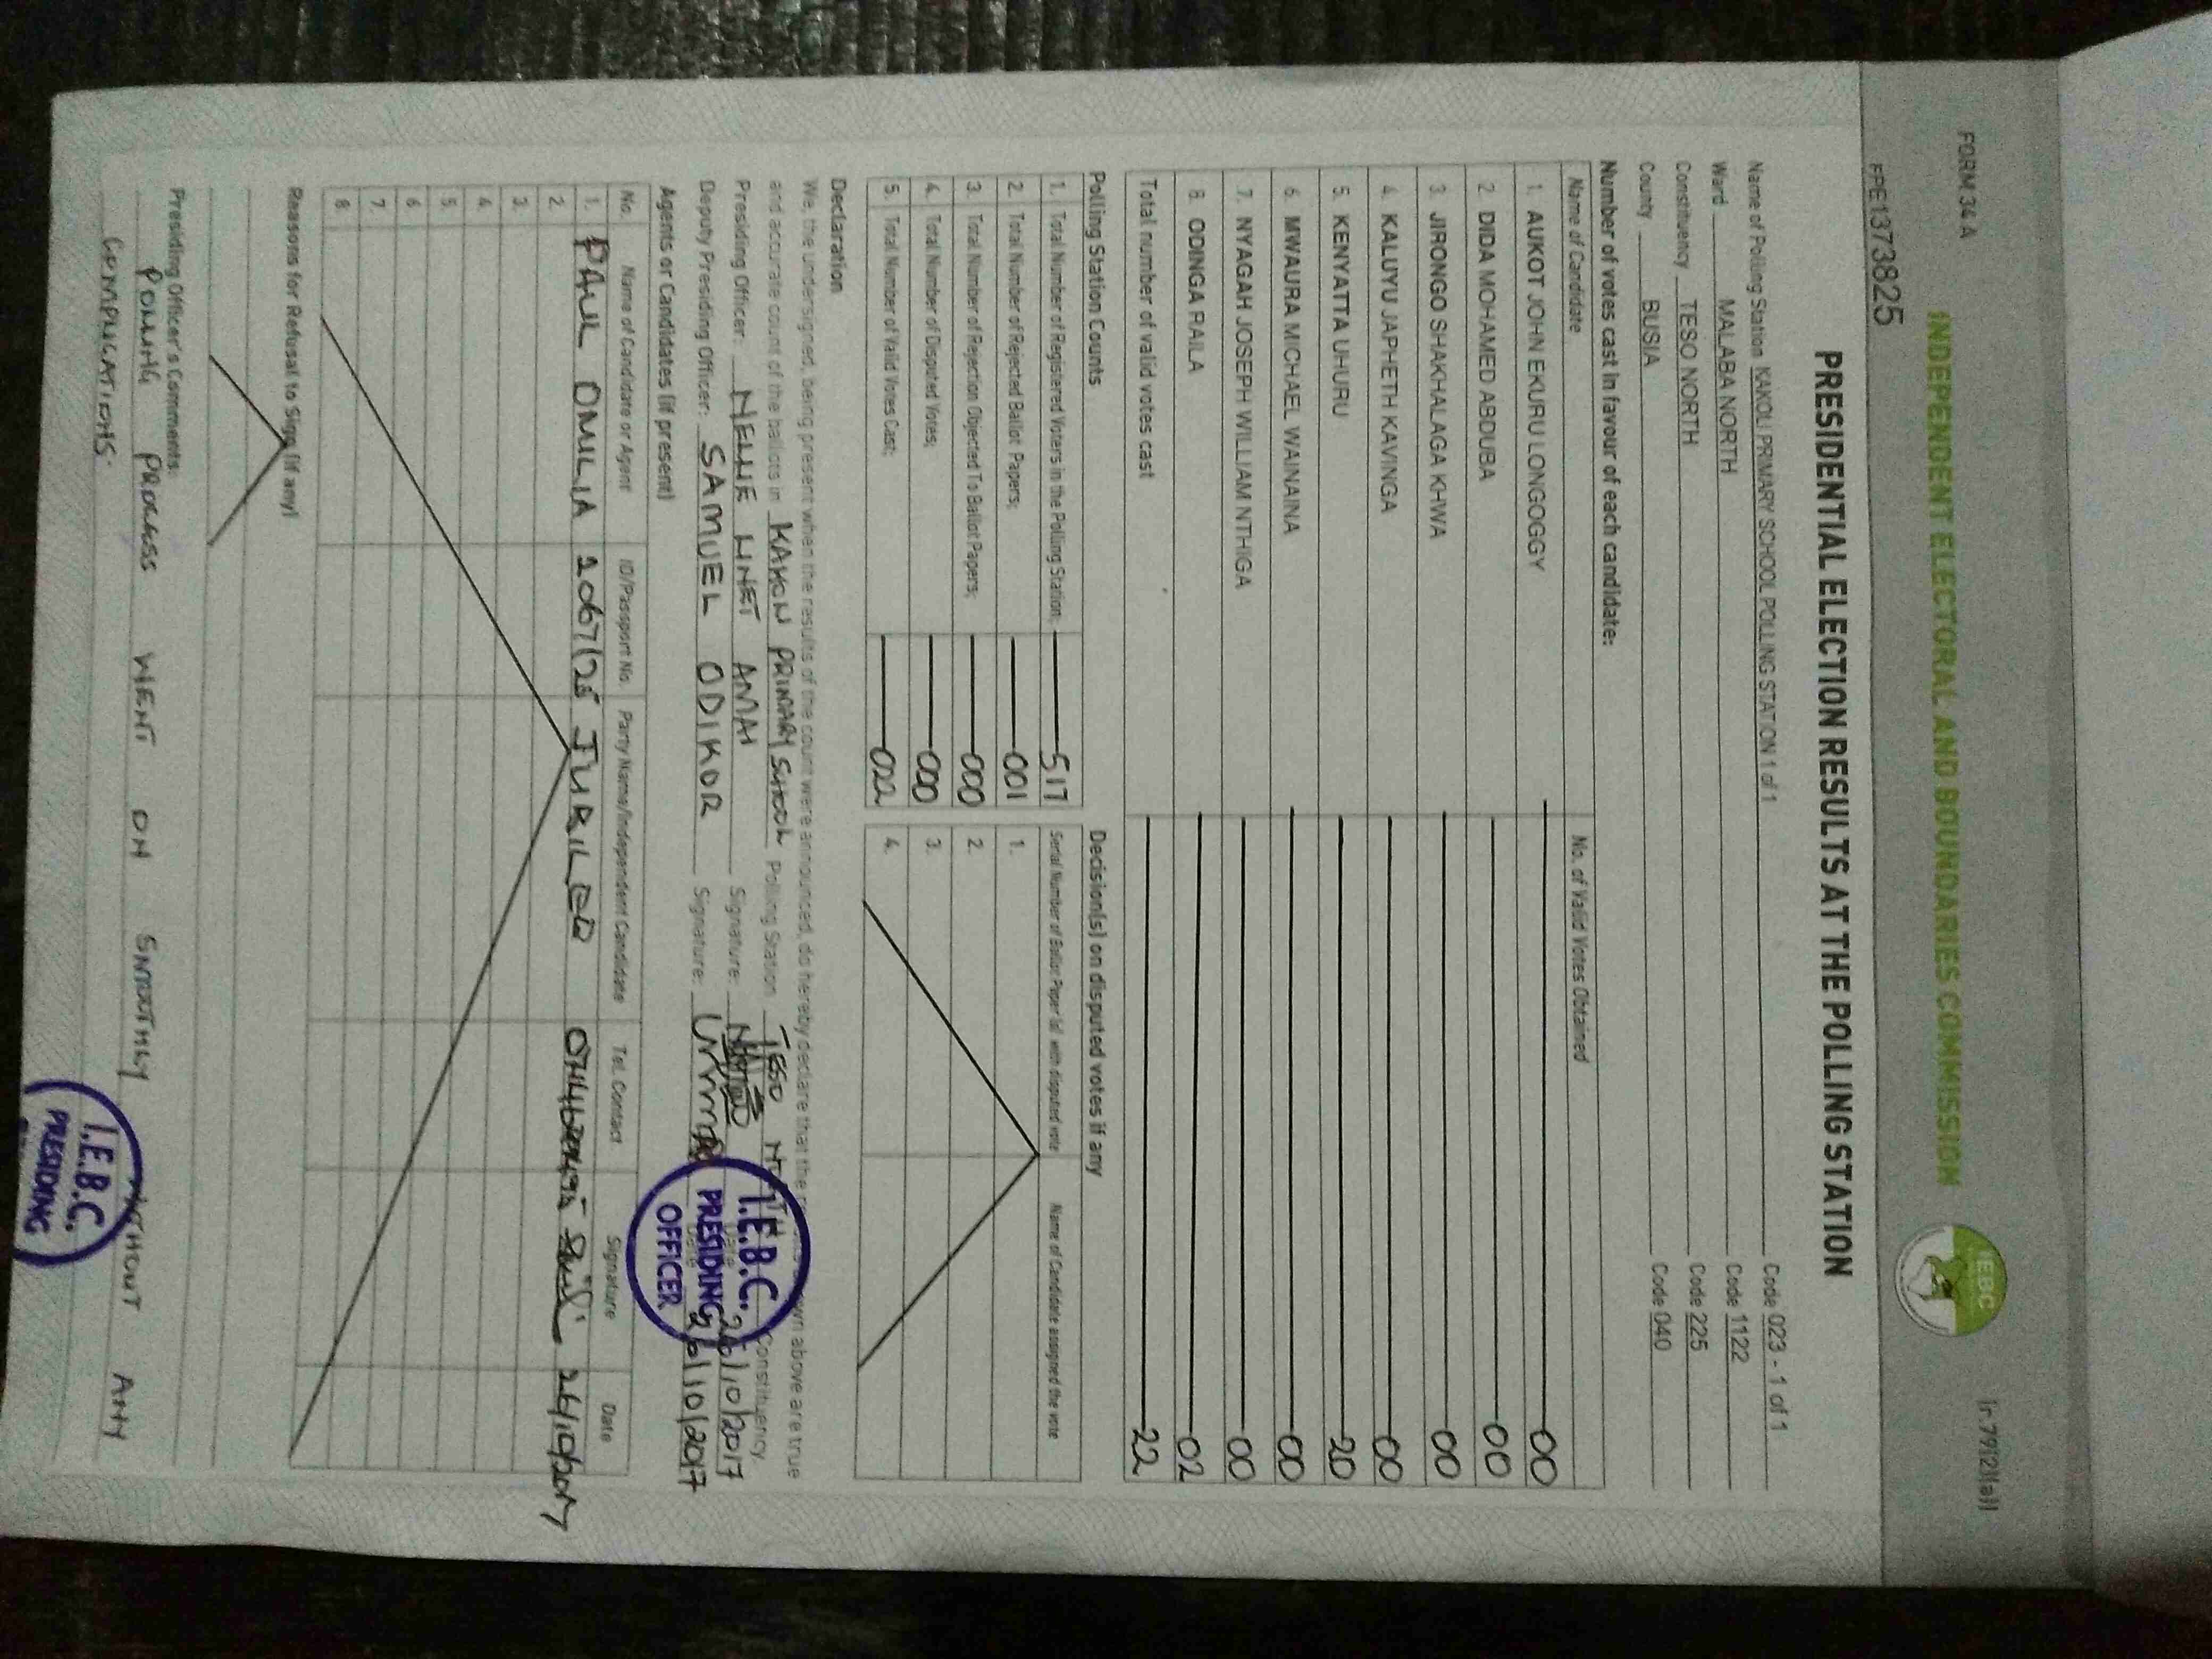 FORM 34A
INDEPENDENT ELECTORAL AND BOUNDARIES COMMISSION
IEBC
(r.79(2)(a))
FPE1373825
PRESIDENTIAL ELECTION RESULTS AT THE POLLING STATION
Name of Polling Station KAKOLI PRIMARY SCHOOL POLLING STATION 1 of 1 Code 023 - 1 of 1
Ward MALABA NORTH Code 1122
Constituency TESO NORTH Code 225
County BUSIA Code 040
Number of votes cast in favour of each candidate:
Name of Candidate No. of Valid Votes Obtained
1. AUKOT JOHN EKURU LONGOGGY 00
2. DIDA MOHAMED ABDUBA 00
3. JIRONGO SHAKHALAGA KHWA 00
4. KALUYU JAPHETH KAVINGA 00
5. KENYATTA UHURU 20
6. MWAURA MICHAEL WAINAINA 00
7. NYAGAH JOSEPH WILLIAM NTHIGA 00
8. ODINGA RAILA 02
Total number of valid votes cast 22
Polling Station Counts
1. Total Number of Registered Voters in the Polling Station; 517
2. Total Number of Rejected Ballot Papers; 001
3. Total Number of Rejection Objected To Ballot Papers; 000
4. Total Number of Disputed Votes; 000
5. Total Number of Valid Votes Cast; 022
Decision(s) on disputed votes if any
Serial Number of Ballot Paper (s) with disputed vote Name of Candidate assigned the vote
1.
2.
3.
4.
Declaration
We, the undersigned, being present when the results of the count were announced, do hereby declare that the own above are true
and accurate count of the ballots in KAKOLI PRIMARY SCHOOL Polling Station TESO NORTH Constituency
Presiding Officer: NELLIE LINET AMAI Signature: 26/10/2017
Deputy Presiding Officer: SAMUEL ODIKOR Signature: 26/10/2017
I.E.B.C.
PRESIDING
OFFICER
Agents or Candidates (if present)
No. Name of Candidate or Agent ID/Passport No. Party Name/Independent Candidate Tel. Contact Signature Date
1. PAUL OMILIA JUBILEE 26/10/2017
2.
3.
4.
5.
6.
7.
8.
Reasons for Refusal to Sign (if any)
Presiding Officer's Comments:
POLLING PROCESS WENT ON SMOOTHLY WITHOUT ANY
COMPLICATIONS.
I.E.B.C.
PRESIDING